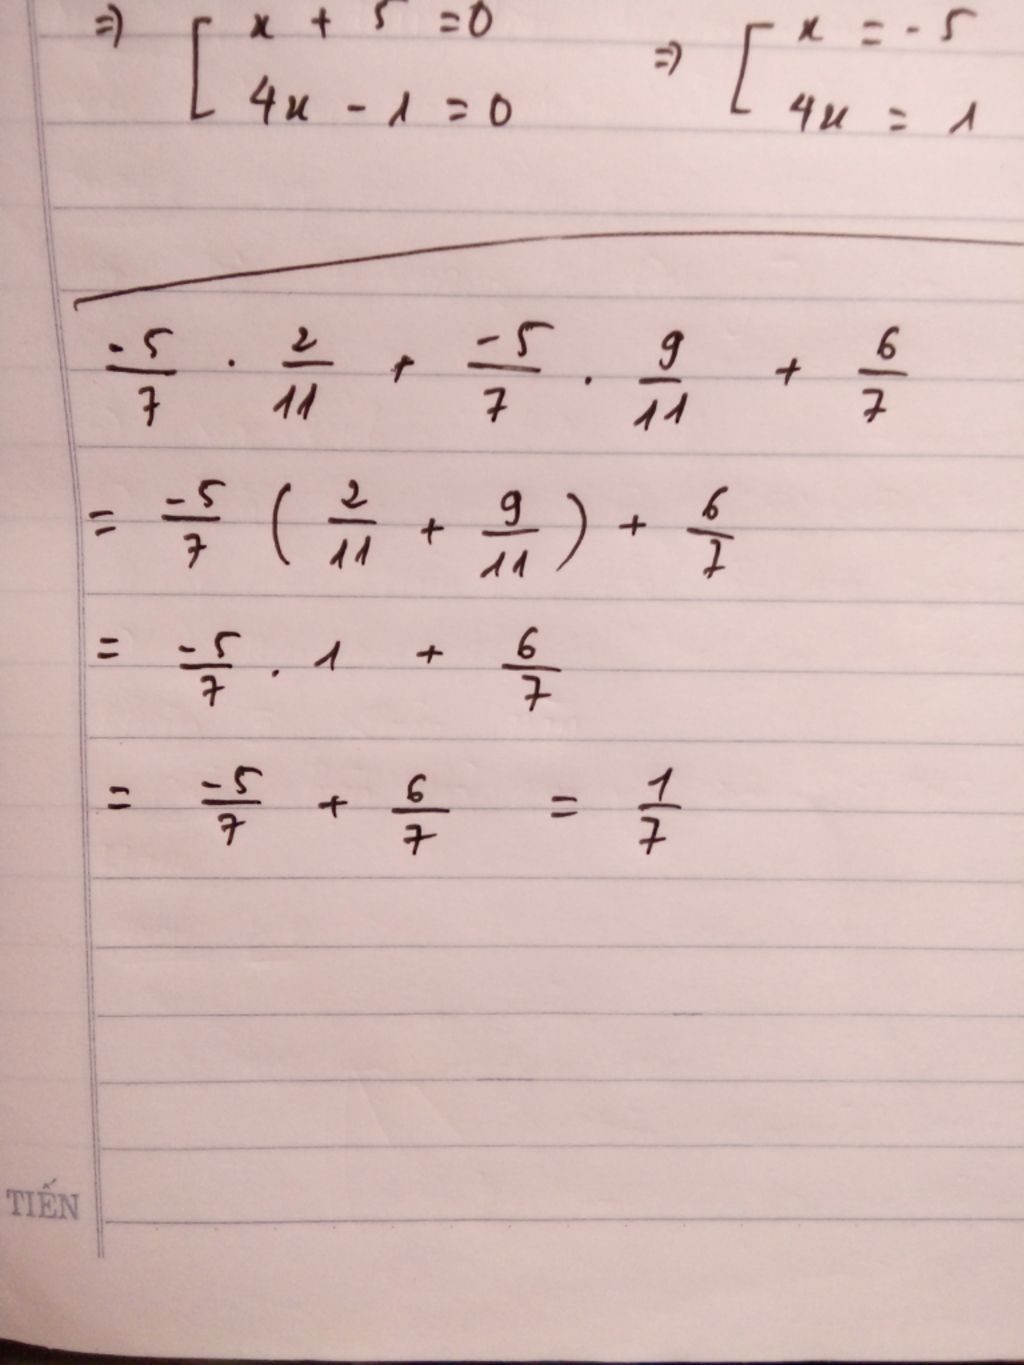 => [ x + 5 = 0 => [ x = -5
4x - 1 = 0 4x = 1
-5/7 . 2/11 + -5/7 . 9/11 + 6/7
= -5/7 ( 2/11 + 9/11 ) + 6/7
= -5/7 . 1 + 6/7
= -5/7 + 6/7 = 1/7
TIẾN